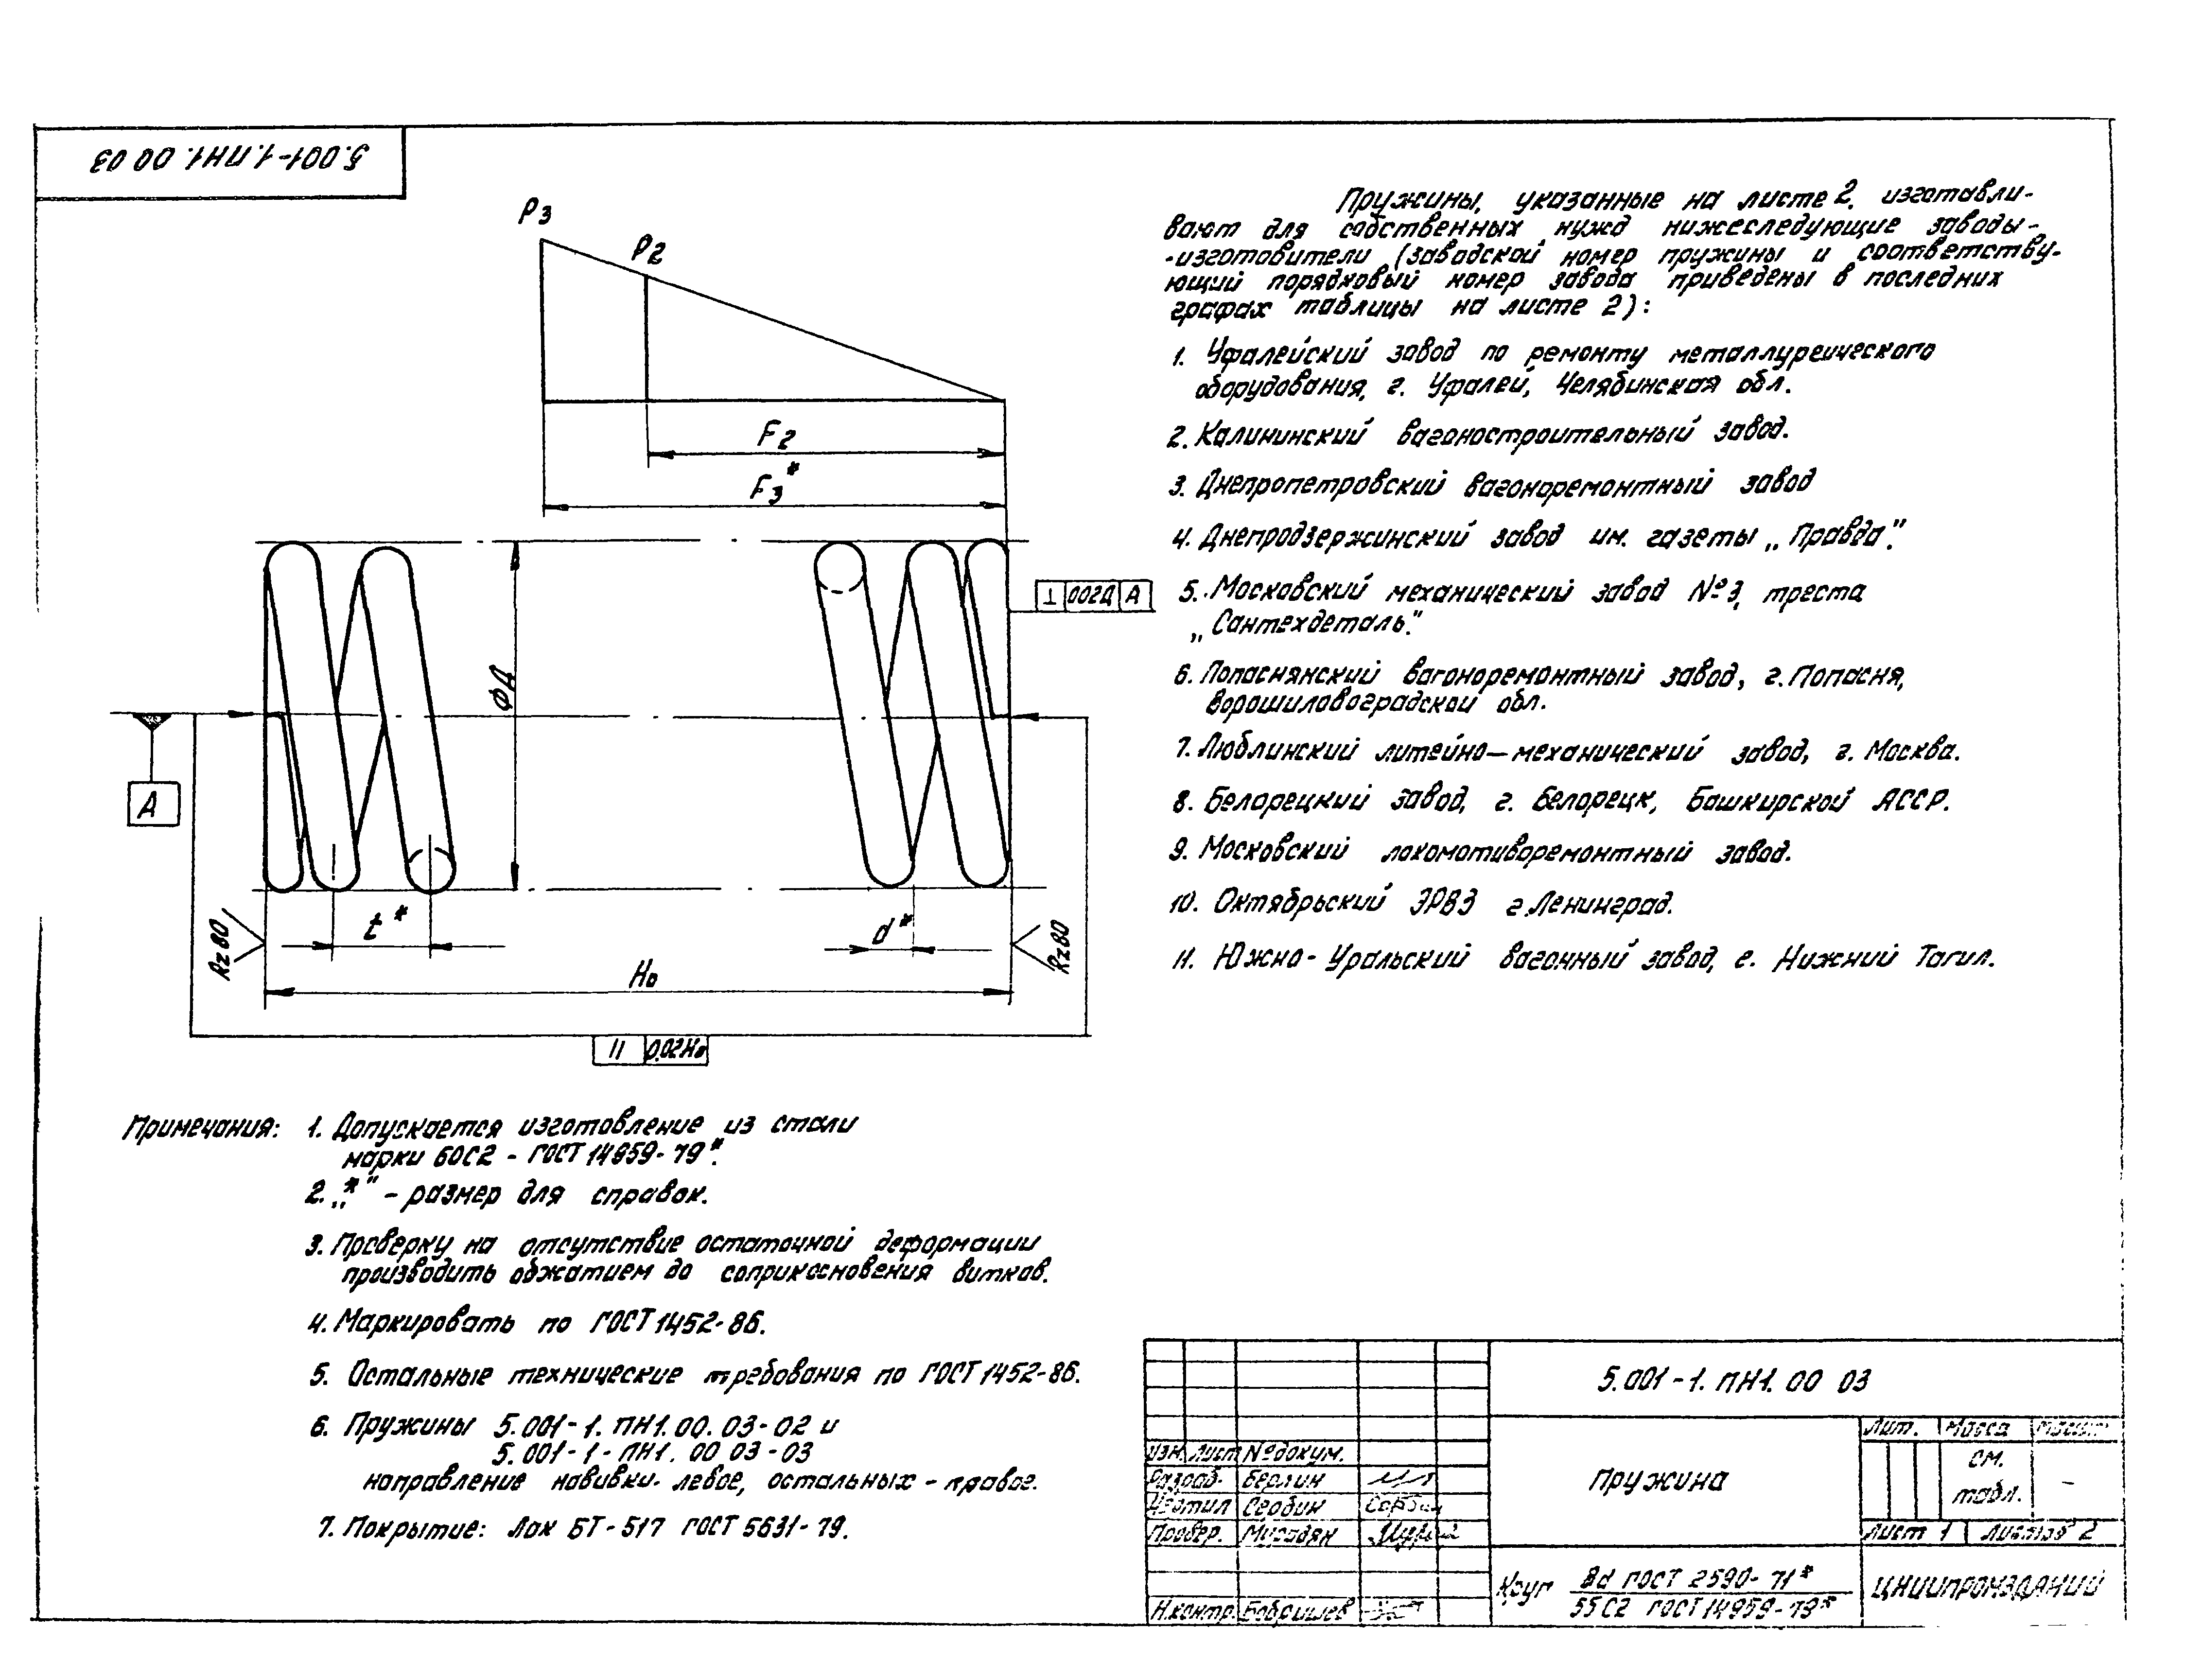 5.001-1.ПН1.00 03
P3
P2
F2
F3*
ΦД
⊥ 0,02Д А
А
t*
d*
Rz80
Rz80
H0
|| 0,02H0
Пружины, указанные на листе 2, изготавли-
вают для собственных нужд нижеследующие заводы-
-изготовители (заводской номер пружины и соответству-
ющий порядковый номер завода приведены в последних
графах таблицы на листе 2):
1. Уфалейский завод по ремонту металлургического
оборудования, г. Уфалей, Челябинская обл.
2. Калининский вагоностроительный завод.
3. Днепропетровский вагоноремонтный завод
4. Днепродзержинский завод им. газеты „Правда".
5. Московский механический завод №3, треста
„Сантехдеталь".
6. Попаснянский вагоноремонтный завод, г. Попасня,
Ворошиловоградской обл.
7. Люблинский литейно-механический завод, г. Москва.
8. Белорецкий завод, г. Белорецк, Башкирской АССР.
9. Московский локомотиворемонтный завод.
10. Октябрьский ЭРВЗ г.Ленинград.
11. Южно-Уральский вагонный завод, г. Нижний Тагил.
Примечания: 1. Допускается изготовление из стали
марки 60С2 - ГОСТ 14959-79*.
2. „*" - размер для справок.
3. Проверку на отсутствие остаточной деформации
производить обжатием до соприкосновения витков.
4. Маркировать по ГОСТ 1452-86.
5. Остальные технические требования по ГОСТ 1452-86.
6. Пружины 5.001-1.ПН1.00.03-02 и
5.001-1-ПН1.00 03-03
направление навивки- левое, остальных - правое.
7. Покрытие: Лак БТ-517 ГОСТ 5631-79.
5.001-1.ПН1.00 03
Изм. Лист № докум.
Разраб. Берлин
Провер.
Н.контр. Бобришев
Пружина
Лит. Масса
см.
табл. -
Лист 1 Листов 2
Круг Bd ГОСТ 2590-71*
55С2 ГОСТ 14959-79*
ЦНИИПРОМЗДАНИЙ